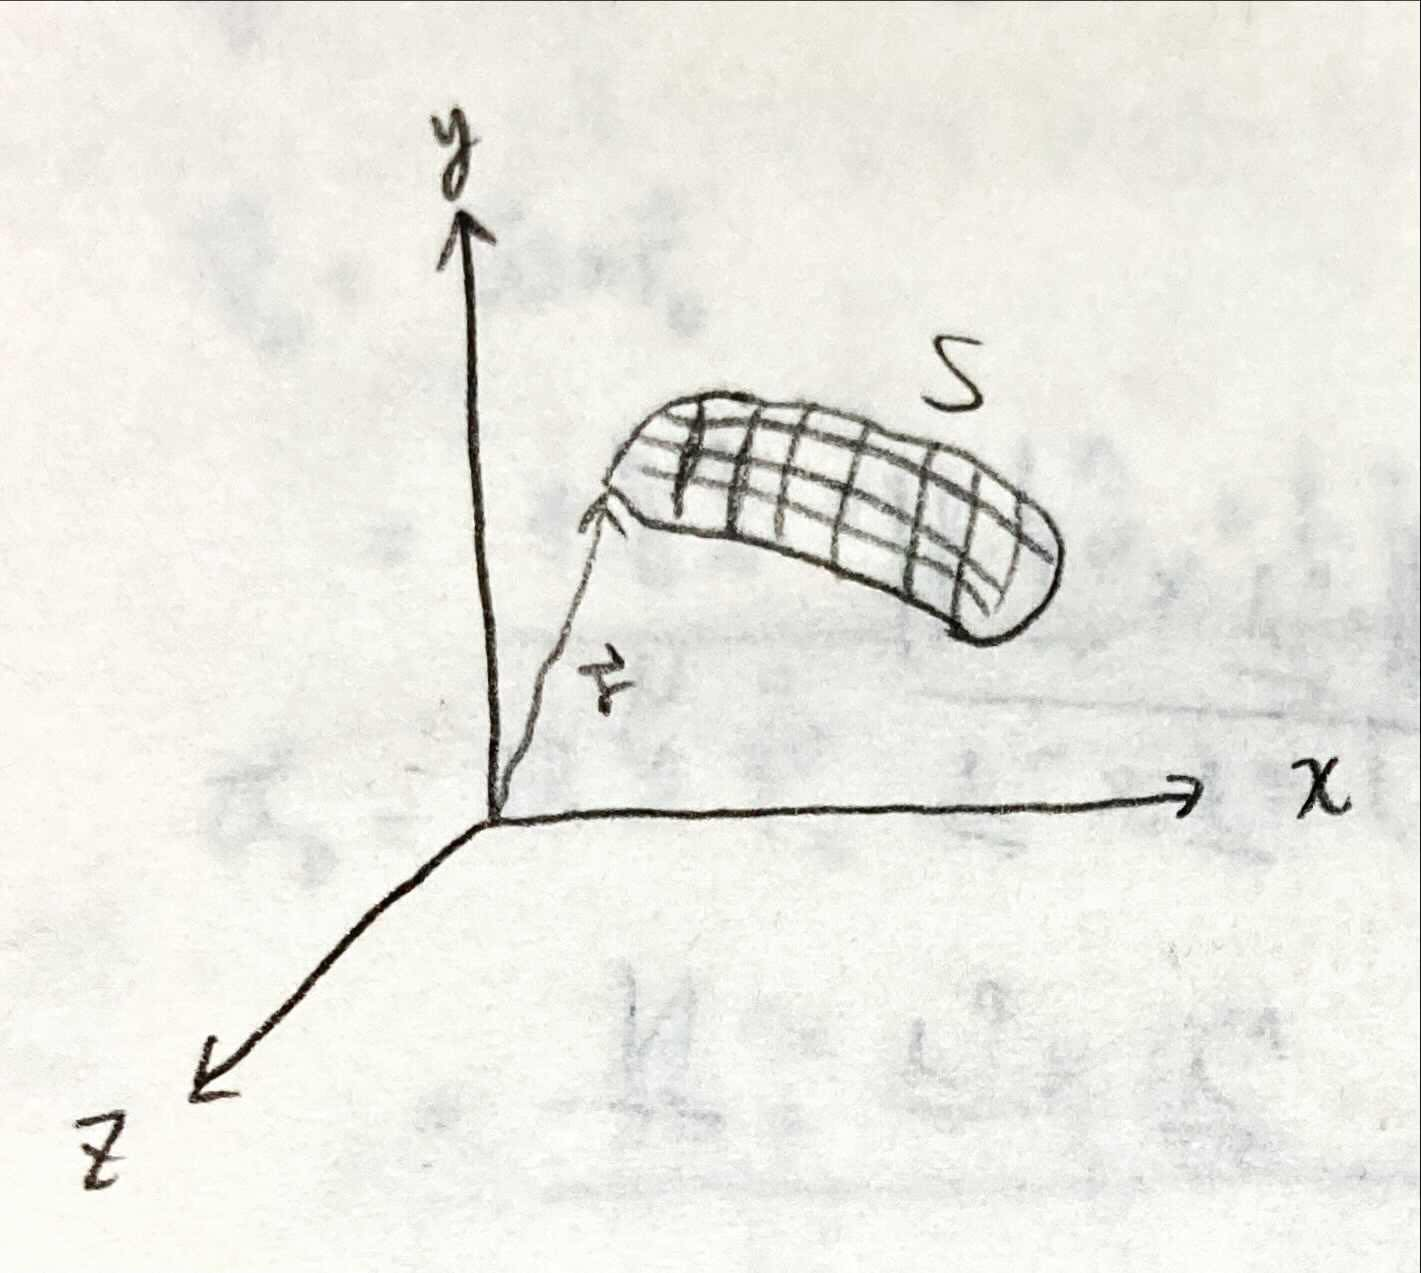 y
S
r⃗
x
z